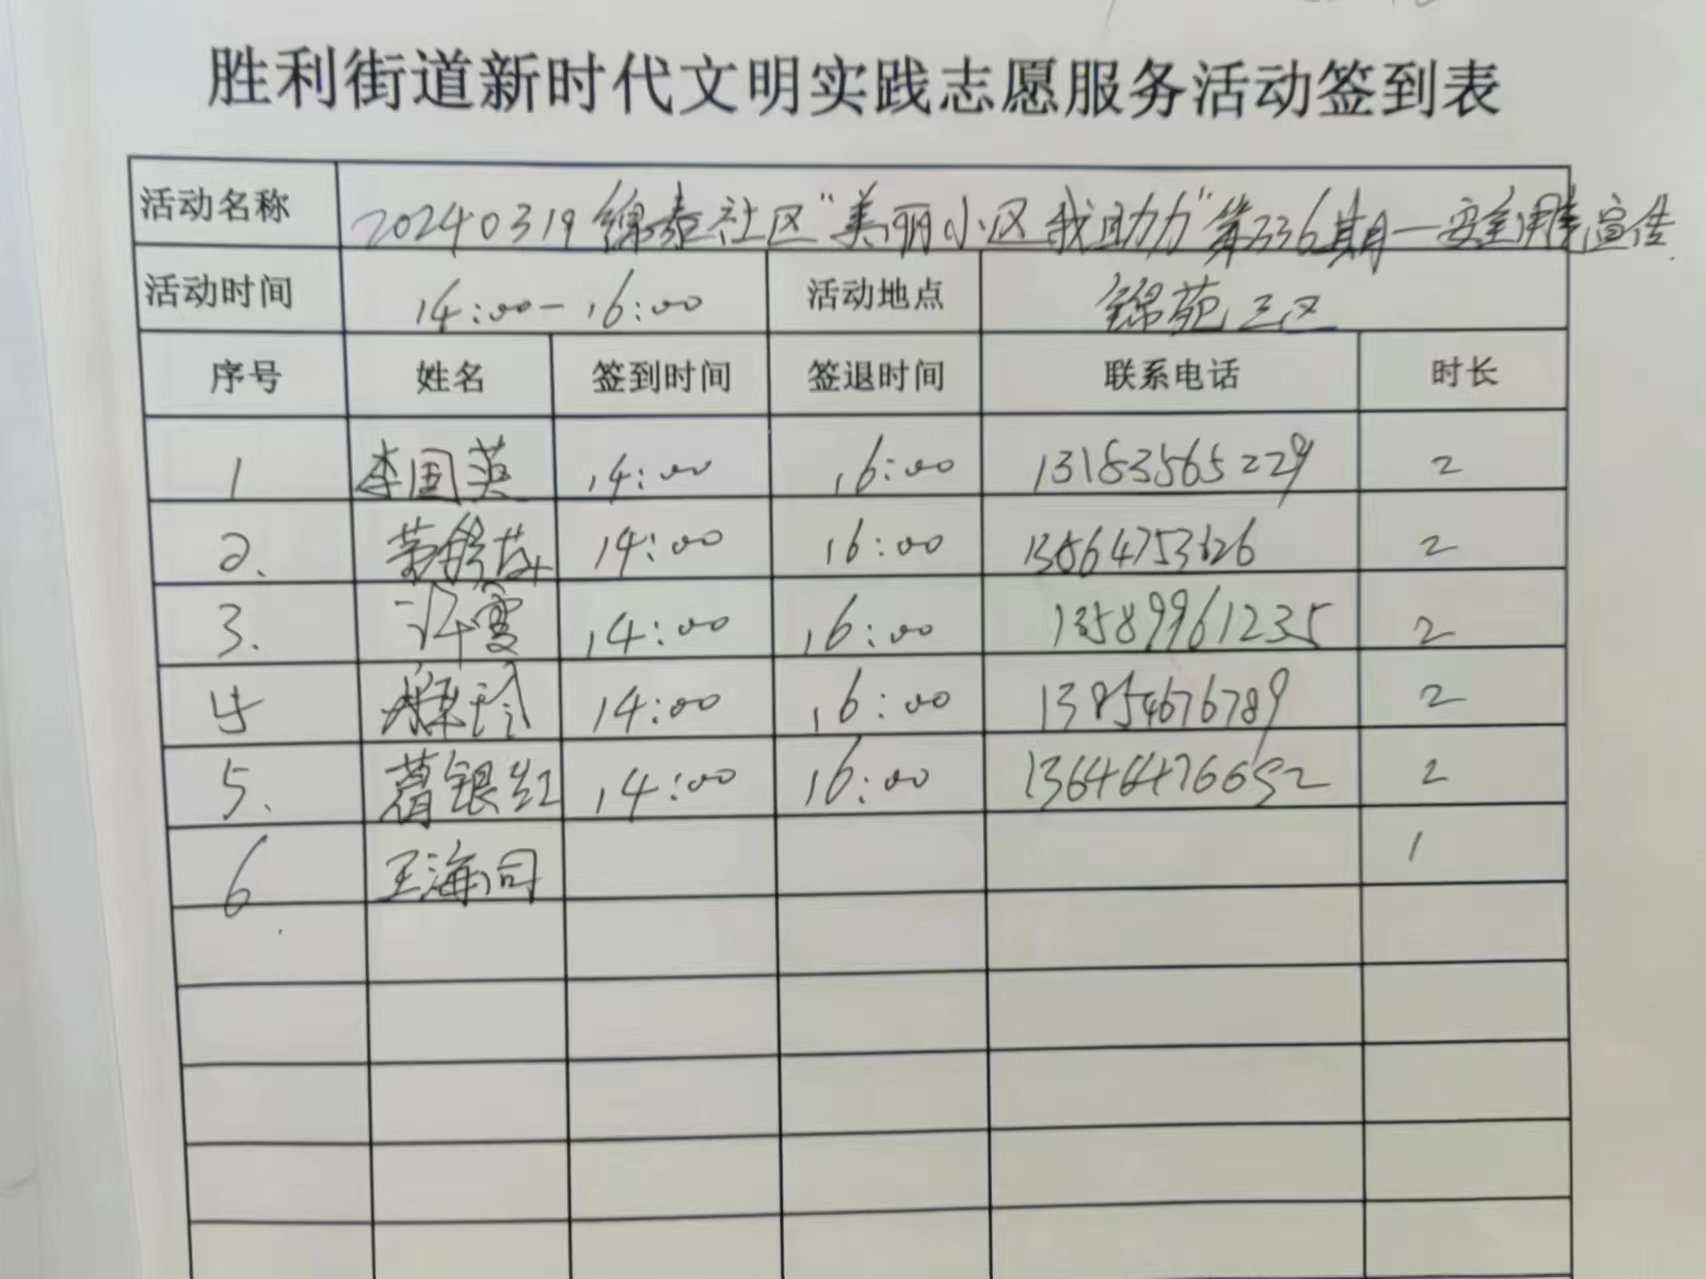 胜利街道新时代文明实践志愿服务活动签到表
活动名称 20240319锦泰社区“美丽小区我助力”第336期—安全用气宣传
活动时间 14:00-16:00 活动地点 锦苑三区
序号 姓名 签到时间 签退时间 联系电话 时长
1 李国英 14:00 16:00 13183565229 2
2、 14:00 16:00 13864753626 2
3、 许霞 14:00 16:00 13589961235 2
4 玲 14:00 16:00 13854676789 2
5、 葛银红 14:00 16:00 13646476652 2
6 王海司 1